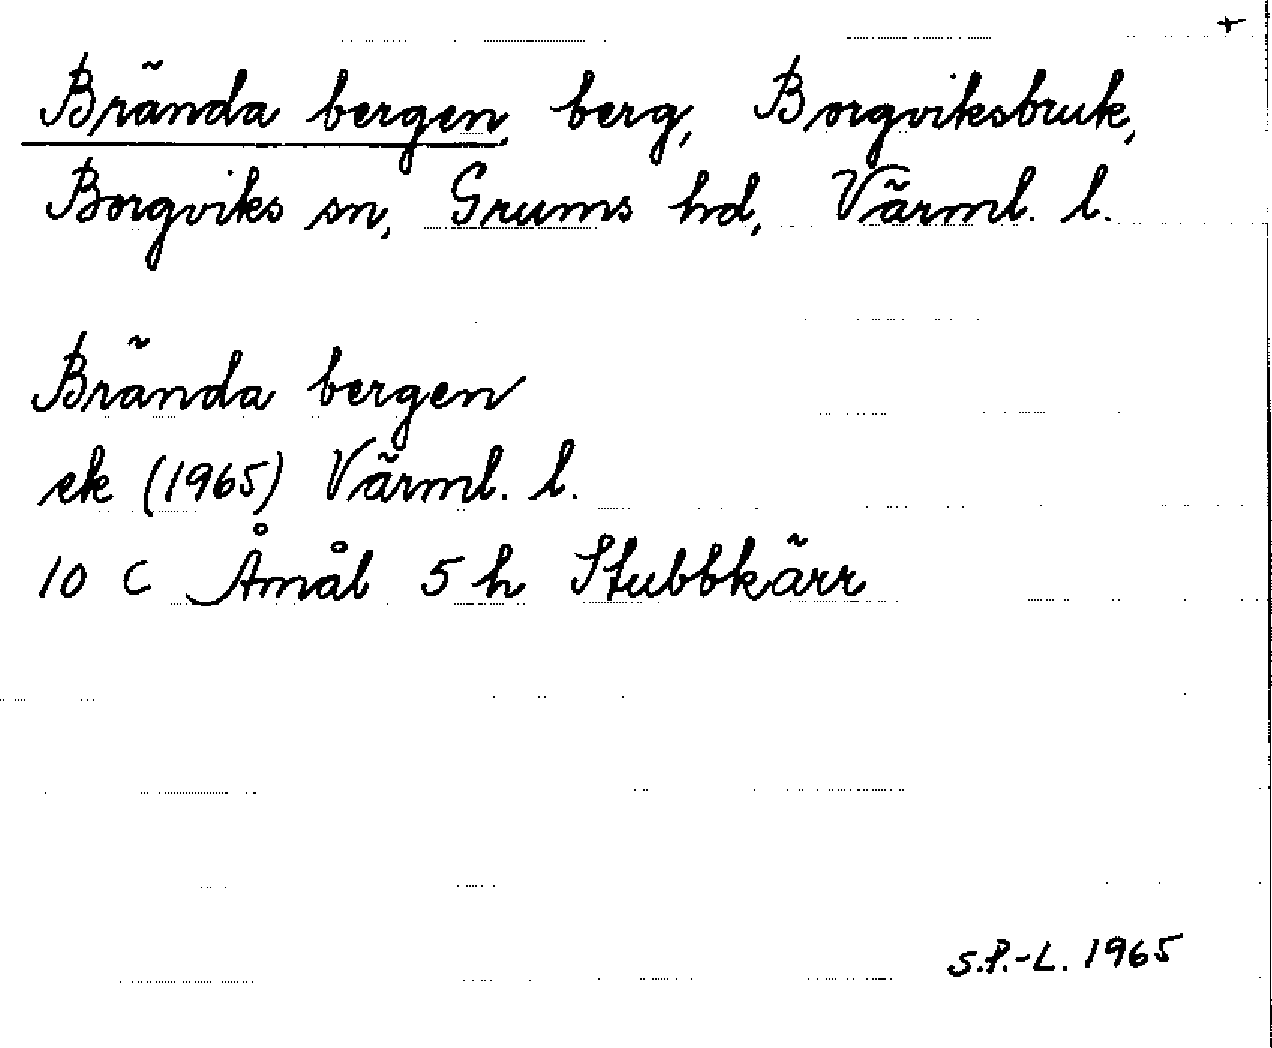 +
Brända bergen, berg, Borgviksbruk,
Borgviks sn, Grums hd, Värml. l.
Brända bergen
ek (1965) Värml. l.
10 C Åmål 5 h Stubbkärr
S.P.-L. 1965